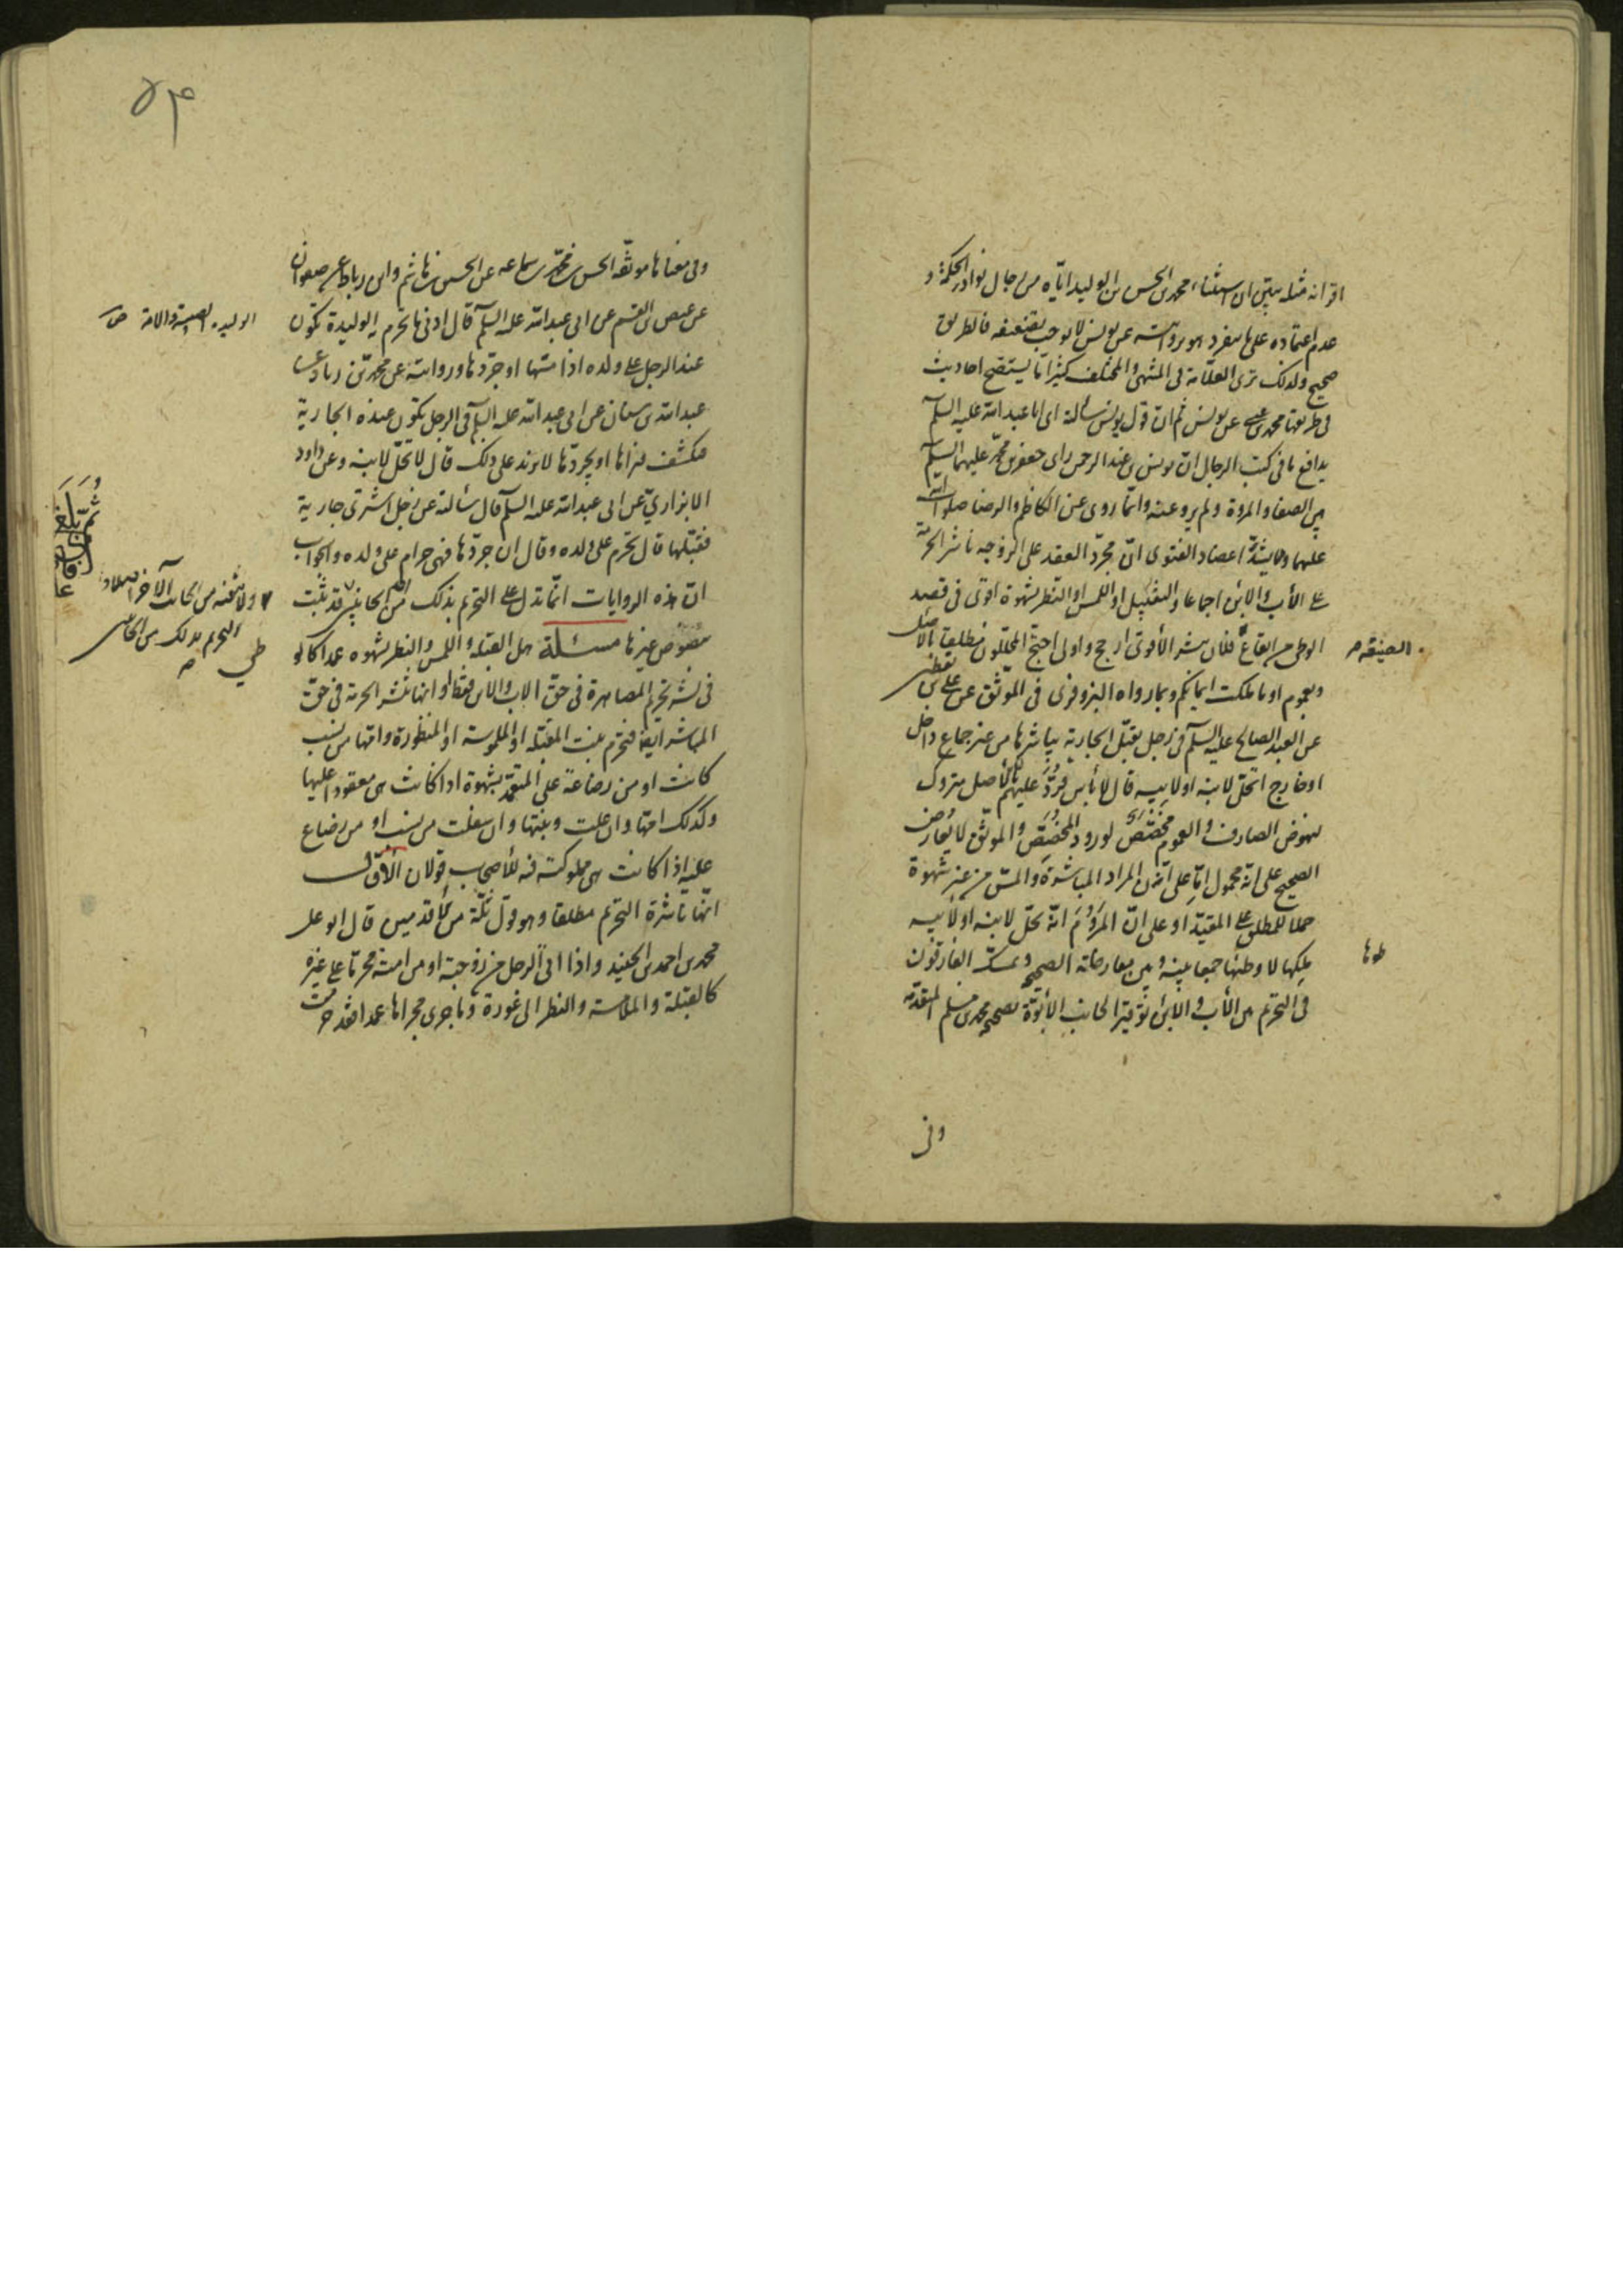 اقرانه مثله يبيّن ان استثناء محمد بن الحسن بن الوليد ايّاه من رجال نوادر الحكمة و
عدم اعتماده على ما ينفرد هو بروايته عن يونس لا يوجب تضعيفه فالطريق
صحيح ولذلك ترى العلّامة في المنتهى والمختلف كثيرا ما يستصح احاديث
في طريقها محمد بن عيسى عن يونس ثم انّ قول يونس سألته اى ابا عبد الله عليه السلم
يدافع ما في كتب الرجال انّ يونس بن عبد الرحمن راى جعفر بن محمّد عليهما السلم
بين الصفا والمروة ولم يرو عنه وانّما روى عن الكاظم والرضا صلوات الله
عليهما ومما يشدّ اعضاد الفتوى انّ مجرّد العقد على الزوجه ناشر الحرمة
على الأب والابن اجماعا والتقبيل او اللمس او النظر بشهوة اقوى في قصد
الوطى من ايقاع فلان ينشر الأقوى ارجح واولى احتج المحلّلون مطلقا بالأصل
الصيغة
وبعموم او ما ملكت ايمانكم وبما رواه البزوفرى في الموثّق عن على بن يقطين
عن العبد الصالح عليه السلم في رجل يقبّل الجارية يباشرها من غير جماع داخل
او خارج اتحلّ لابنه او لابيه قال لا بأس ورُدَّ عليهم بأنّ الأصل متروك
لنهوض الصارف والعموم مخصّص لورود المخصّص والموثّق لا يعارض
الصحيح على انه محمول امّا على انّ المراد المباشرة والمسّ من غير شهوة
حملا للمطلق على المقيّد او على انّ المَرُوم انّه تحلّ لابنه او لأبيه
ملكها لا وطئها جمعا بينه وبين معارضاته الصحيحة وتمسّك الفارقون
وطؤها
في التحريم بين الأب والابن توقيرا لجانب الأبوّة بصحيحة محمد بن مسلم المتقدّمة
وفى
٥٤
وفى معناها موثّقة الحسن بن محمّد بن سماعه عن الحسن بن هاشم وابن رباط عن صفوان
عن عيص بن القسم عن ابى عبد الله عليه السلم قال ادنى ما تحرم به الوليدة تكون
الوليدة الصبية والامة ص
عند الرجل على ولده اذا مسّها او جرّدها وروايته عن محمّد بن زياد عن
عبد الله بن سنان عن ابى عبد الله عليه السلم في الرجل تكون عنده الجارية
فيكشف ثوبها او يجرّدها لا يزيد على ذلك قال لا تحلّ لابنه وعن داود
الابزارى عن ابى عبد الله عليه السلم قال سألته عن رجل اشترى جارية
فقبّلها قال تحرم على ولده وقال ان جرّدها فهى حرام على ولده والجواب
انّ هذه الروايات انّما تدلّ على التحريم بذلك من الجانبين قد ثبت
ولا تنفيه من الجانب الآخر اصلا
التحريم بذلك من الجانبين
بنصوص غيرها مسئلة هل القبلة واللمس والنظر بشهوه عمدا كالوطى
في نشر تحريم المصاهرة في حقّ الاب والابن فقط او انها تنشر الحرمة في حقّ
المباشر ايضا فتحرم بنت المقبّلة او الملموسة او المنظورة وامّها من نسب
كانت او من رضاعة على المتعمّد بشهوة اذا كانت هى معقودا عليها
وكذلك امّها وان علت وبنتها وان سفلت من نسب او من رضاع
عليه اذا كانت هى مملوكته فيه للأصحاب قولان الأوّل
انّها ناشرة التحريم مطلقا وهو قول ثلّة من الأقدمين قال ابو على
محمد بن احمد بن الجنيد واذا اتى الرجل من زوجته او من امته محرّما على غيره
كالقبلة والملامسة والنظر الى عورة وما جرى مجراها عمدا فقد حرمت
ثُمَّ بَلَغَ